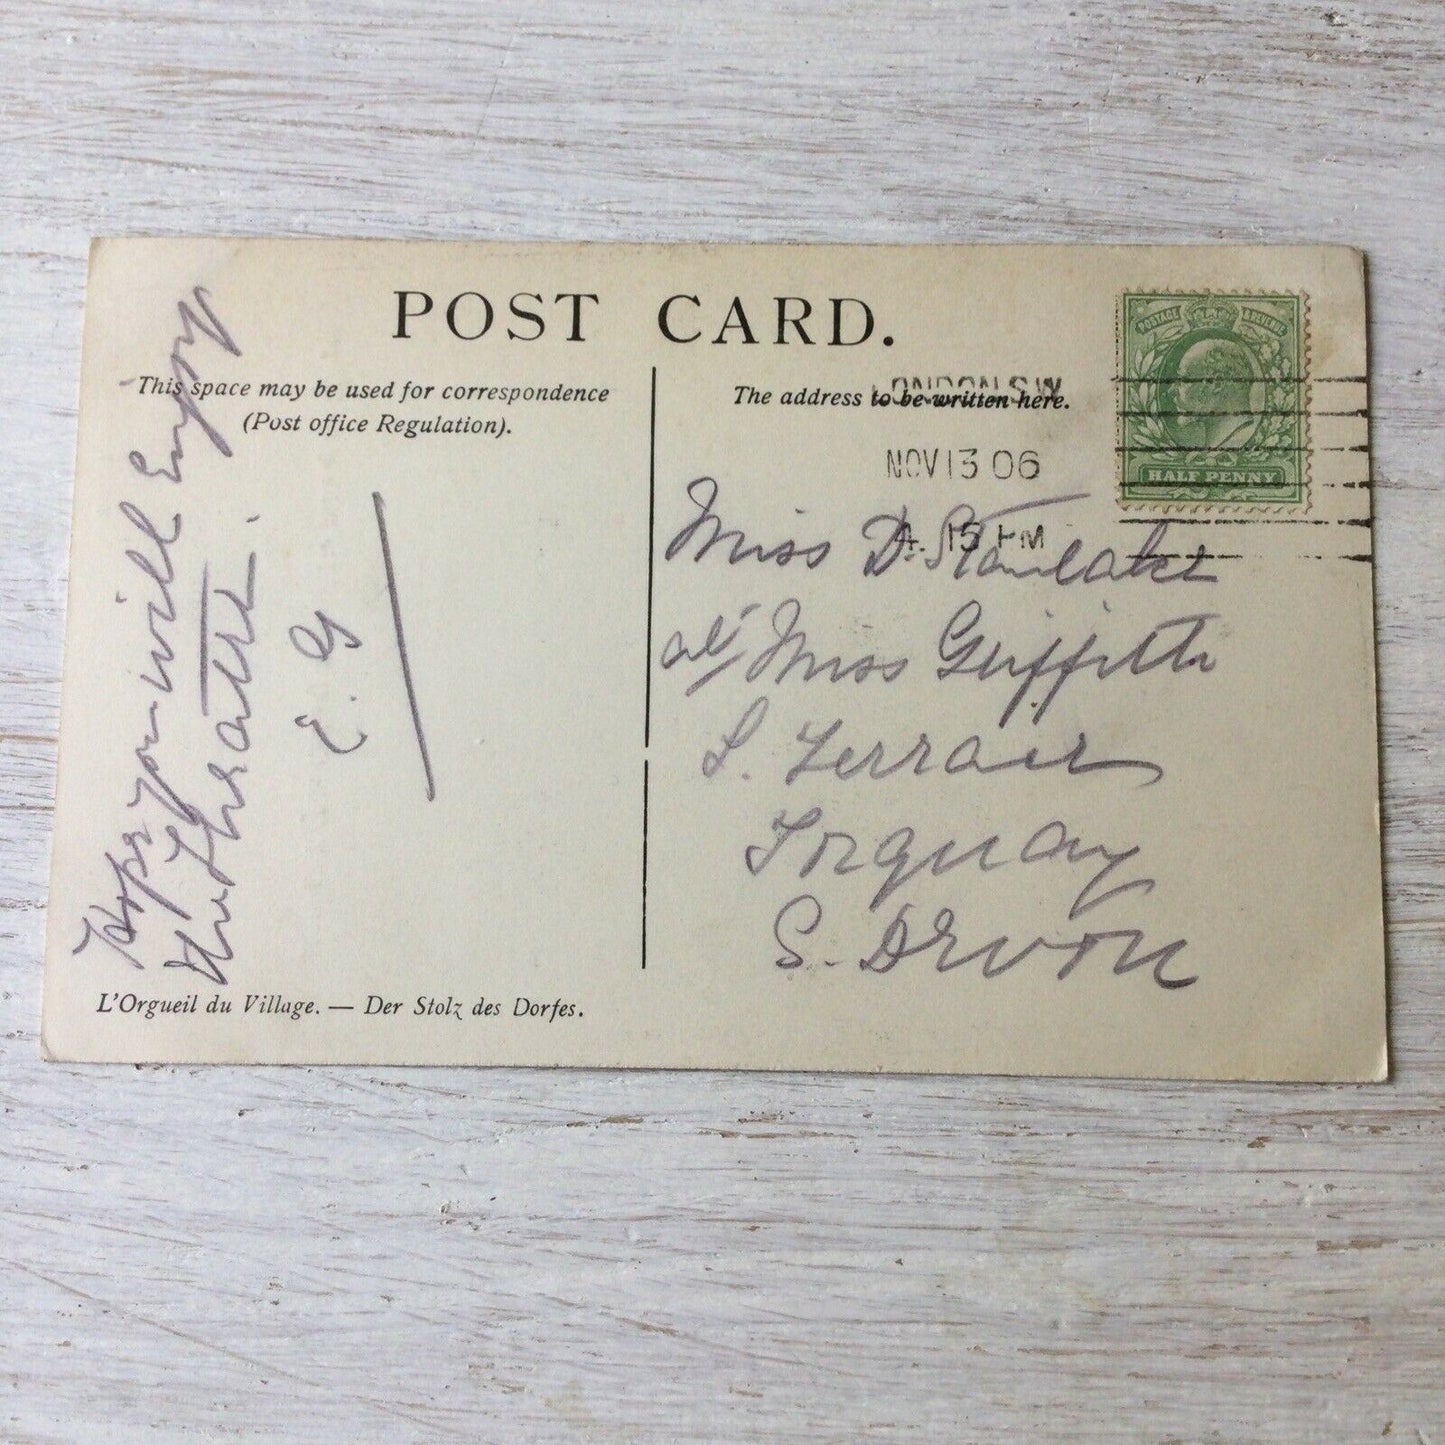 POST CARD.
This space may be used for correspondence
(Post office Regulation).
The address to be written here.
LONDON.S.W
NOV 13 06
4. 15 PM
POSTAGE & REVENUE
HALF PENNY
Hope you will Enjoy
the Theatre.
E. G
Miss D. Stanlake
Miss Griffith
Terrace
Torquay
S. Devon
L'Orgueil du Village. — Der Stolz des Dorfes.